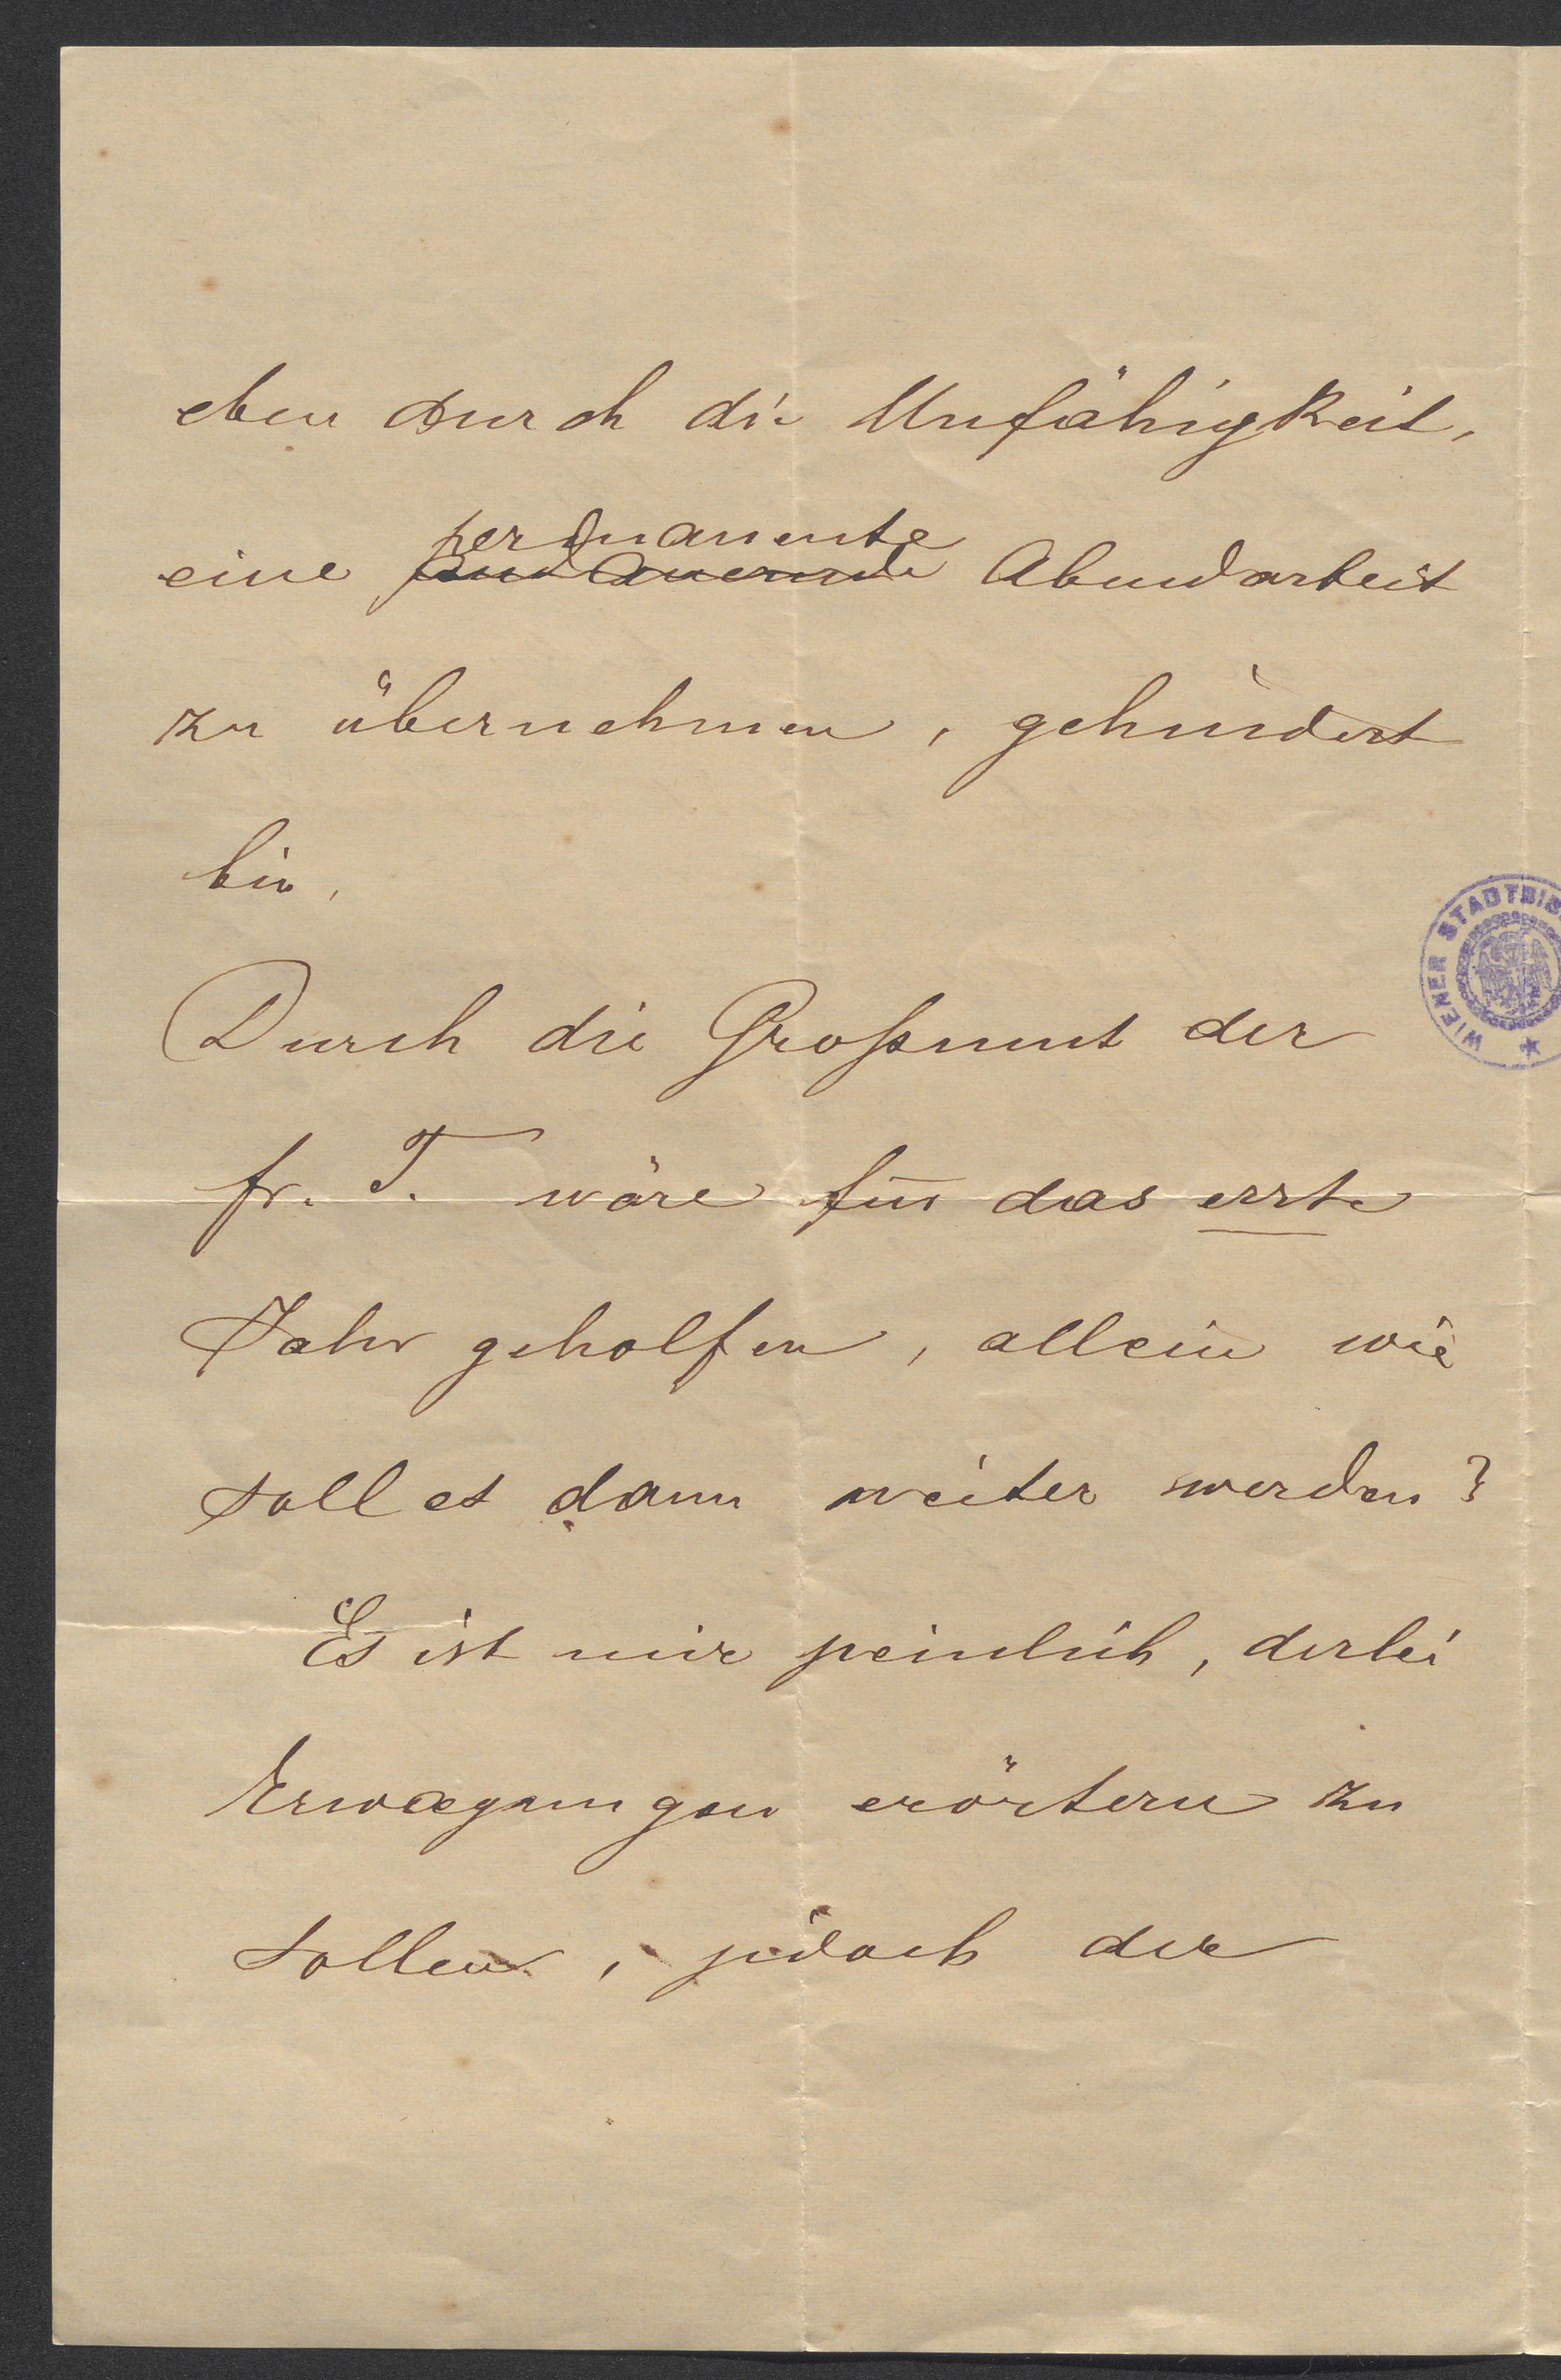 eben durch die Unfähigkeit,
permanente
eine Abendarbeit
zu übernehmen, gehindert
bin.
Durch die Großmut der
Fr. T. wäre für das erste
Jahr geholfen, allein wie
soll es dann weiter werden?
Es ist mir peinlich, derlei
Erwägungen erörtern zu
sollen, jedoch der
WIENER STADTBIB